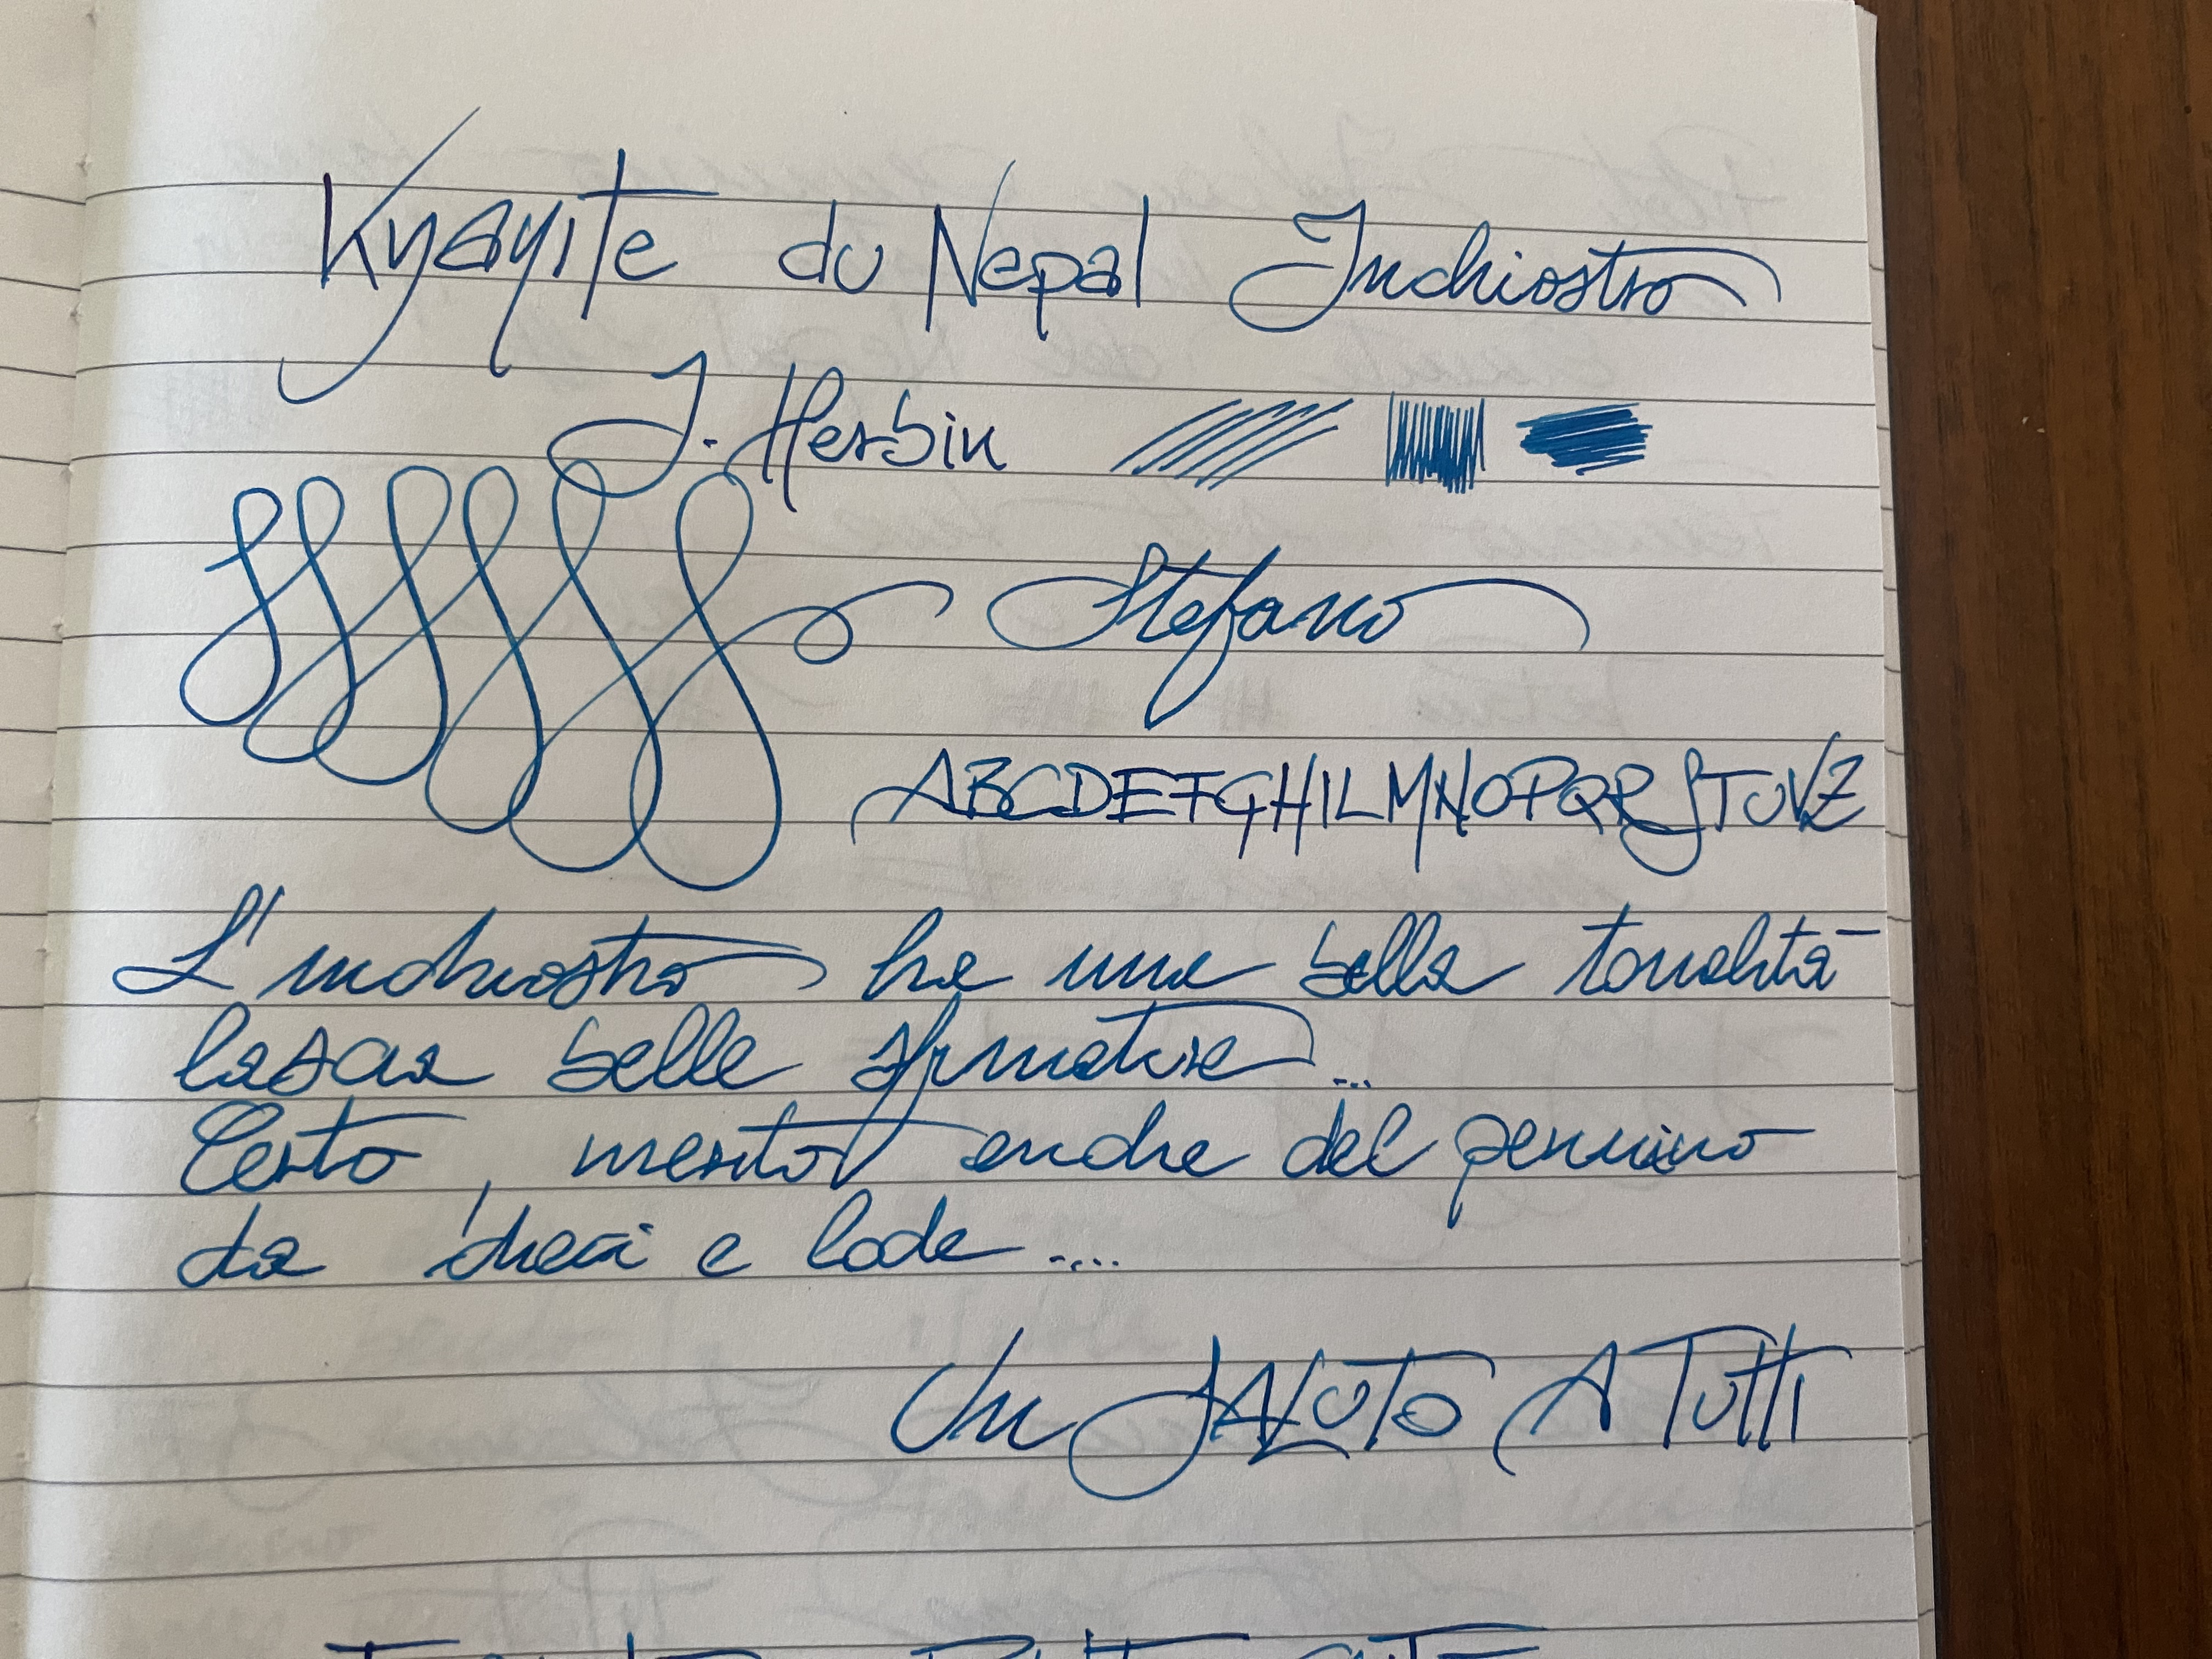 Kyanite du Nepal Inchiostro
J. Herbin
Stefano
ABCDEFGHILMNOPQRSTUVZ
L'inchiostro ha una bella tonalità
lascia belle sfumature...
Certo, merito anche del pennino
da dieci e lode....
Un SALUTO A TUTTI